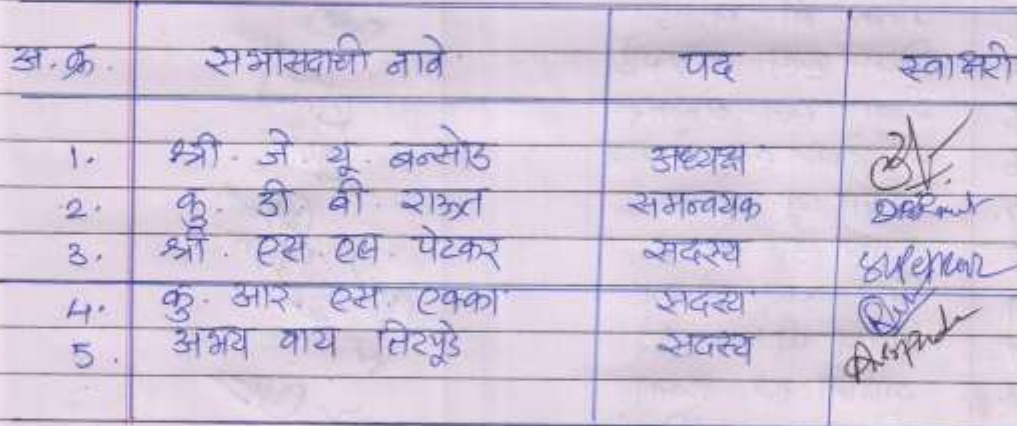 अ. क्र. सभासदाची नावे पद स्वाक्षरी
1. श्री. जे. यू. बन्सोड अध्यक्ष
2. कु. डी. बी. राऊत समन्वयक DBRaut
3. श्री. एस. एल. पेटकर सदस्य
4. कु. आर. एस. एक्का सदस्य
5. अभय वाय तिरपूडे सदस्य